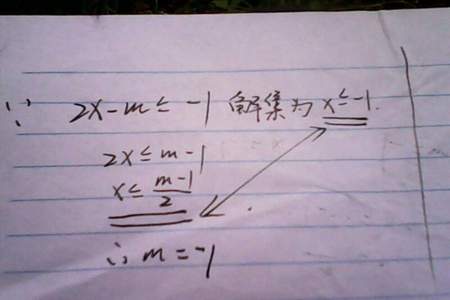 ∵ 2x-m≤-1 解集为 x≤-1.
2x≤m-1
x≤(m-1)/2
∴ m=-1